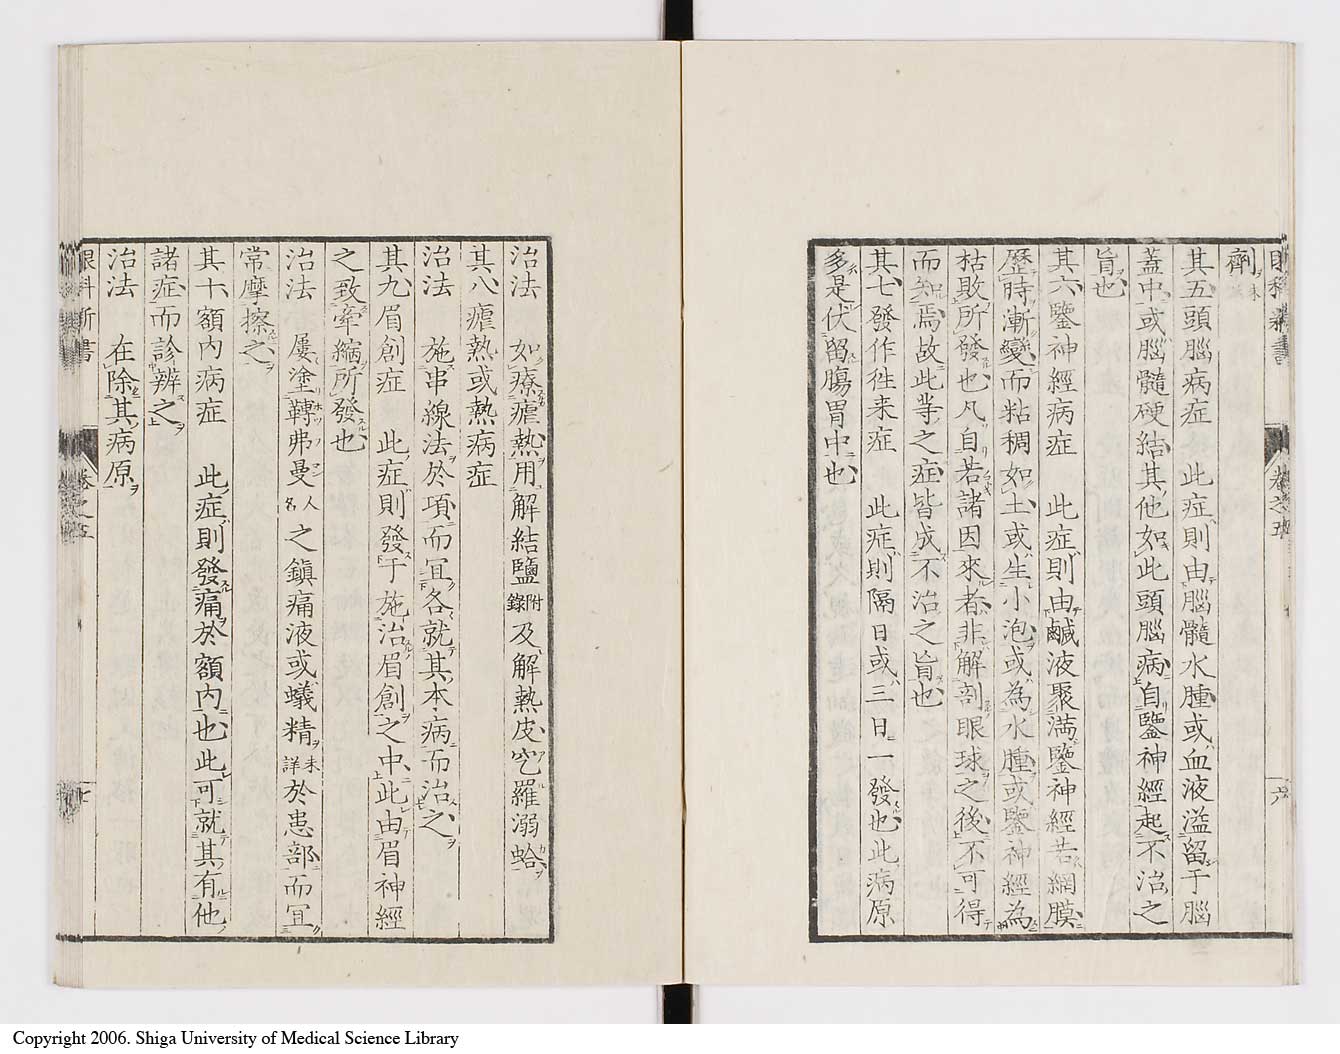 眼科新書
卷之五
六
劑
其五頭腦病症 此症則由腦髓水腫或血液溢留于腦
蓋中或腦髓硬結其他如此頭腦病自鑒神經起不治之
旨也
其六鑒神經病症 此症則由鹹液聚滿鑒神經若網膜
歷時漸變而粘稠如土或生小泡或為水腫或鑒神經為
枯敗所發也凡自若諸因來者非解剖眼球之後不可得
而知焉故此等之症皆成不治之旨也
其七發作徃来症 此症則隔日或三日一發也此病原
多是伏留膓胃中也
治法 如療瘧熱用解結鹽附錄及解熱皮穵羅溺蛤
其八瘧熱或熱病症
治法 施串線法於項而冝各就其本病而治之
其九眉創症 此症則發于施治眉創之中此由眉神經
之致牽縮所發也
治法 屡塗轉弗曼人名之鎮痛液或蟻精未詳於患部而冝
常摩擦之
其十額内病症 此症則發痛於額内也此可就其有他
諸症而診辨之
治法 在除其病原
眼科新書
卷之五
七
Copyright 2006. Shiga University of Medical Science Library